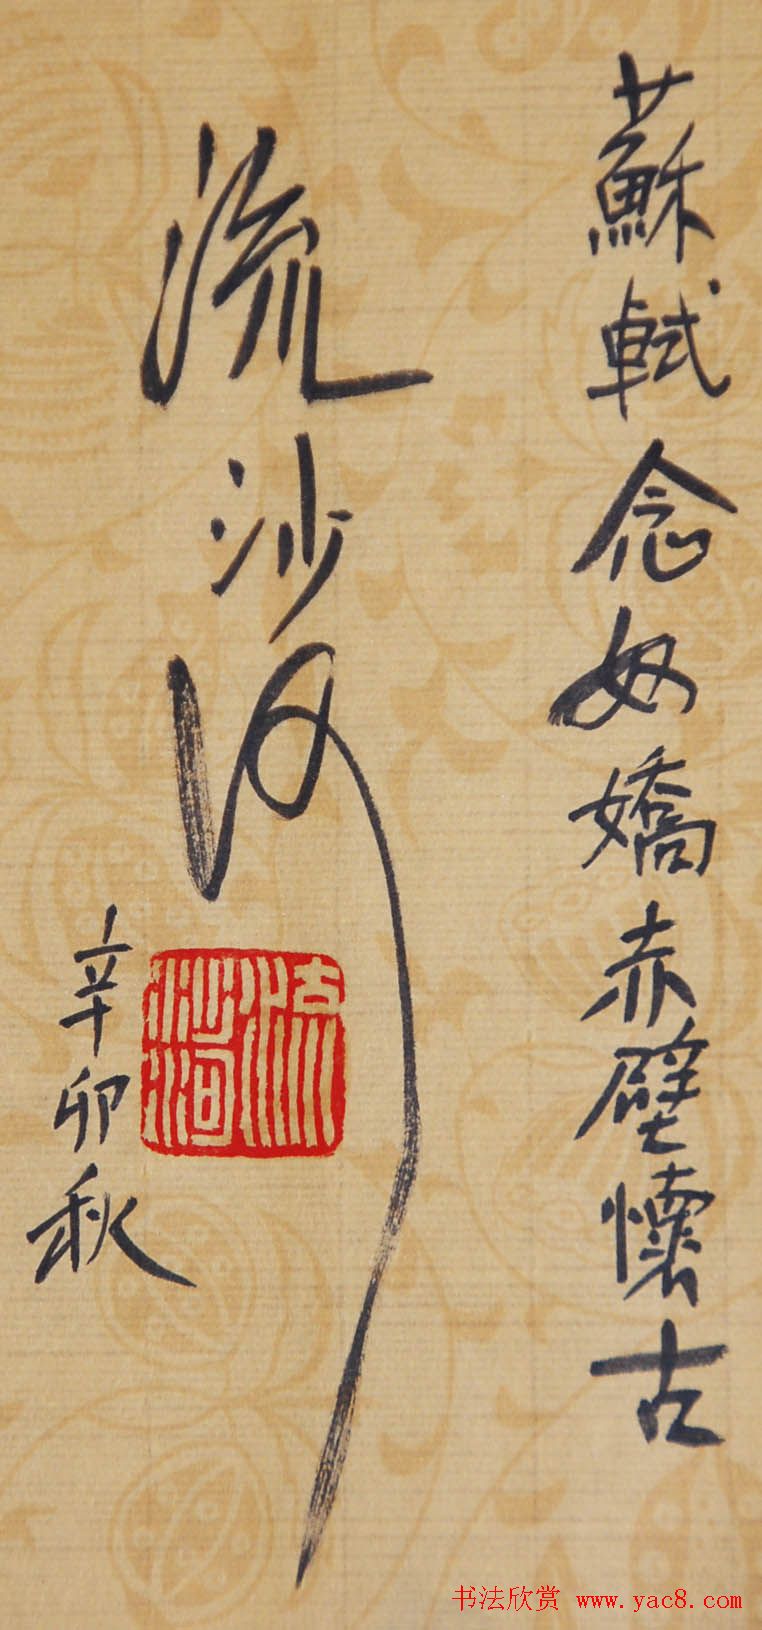 蘇軾念奴嬌赤壁懷古
流沙河
辛卯秋
流沙河
书法欣赏 www.yac8.com